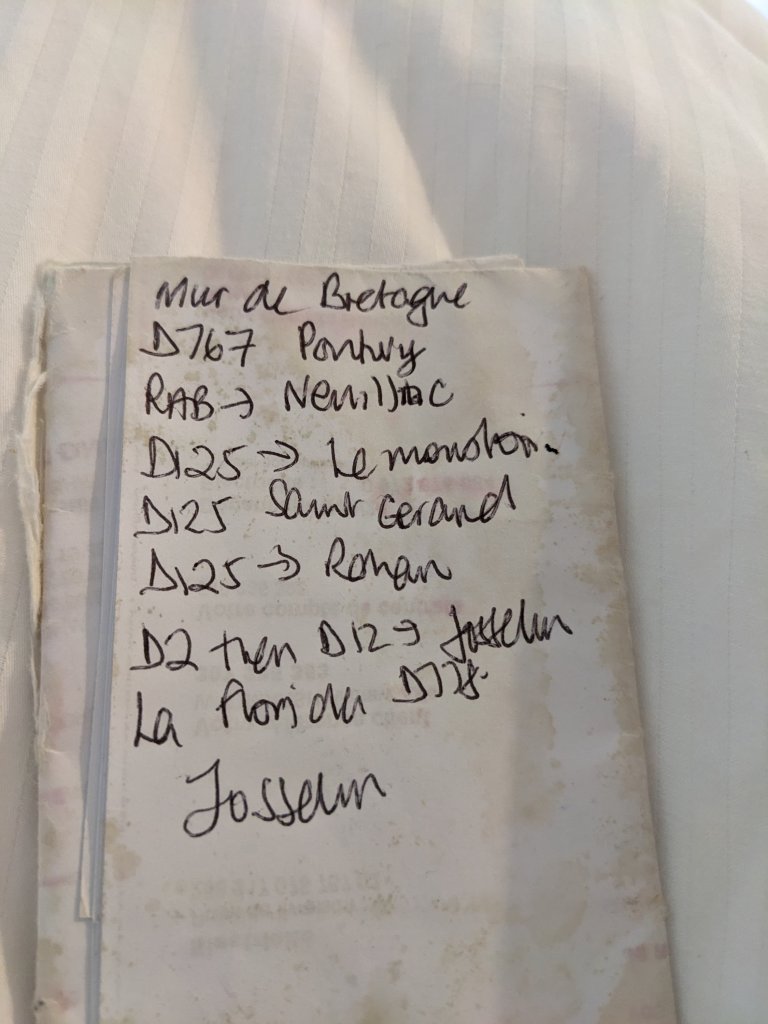 Mur de Bretagne
D767 Pontivy
RAB → Neuilliac
D125 → Le monstoir.
D125 Saint Gerand
D125 → Rohan
D2 then D12 → Josselin
La florida D778.
Josselin